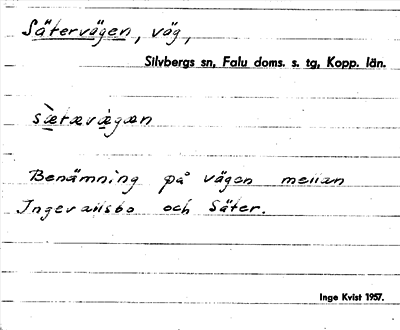 Sätervägen, väg,
Silvbergs sn, Falu doms. s. tg, Kopp. län.
sæ̀tævæ̀gæn
Benämning på vägen mellan
Ingevallsbo och Säter.
Inge Kvist 1957.